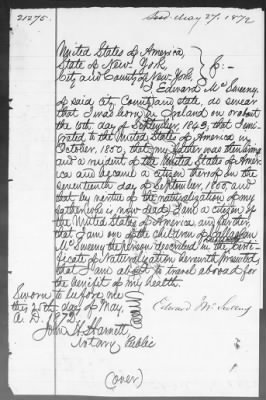 21275.
Issd May 27. 1872
United States of America,
State of New York
City and County of New York,
I Edward McSweeny
of said city, County and state, do swear
that I was born in Ireland on or about
the 6th day of September, 1843, that I emi-
grated to the United States of America in
October, 1850, that my father was then living
and a resident of the United States of America
and became a citizen thereof on the
seventeenth day of September, 1860, and
that by virtue of the naturalization of my
father who is now dead, I am a citizen of
the United States of America, and further,
that I am one of the children of Callaghan
McSweeny the person described in the Certi-
ficate of Naturalization herewith presented,
that I am about to travel abroad for
the benefit of my health.
Sworn to before me
this 25th day of May,
A. D. 1872
Edward McSweeny
John H. Harnett
Notary Public
(over)